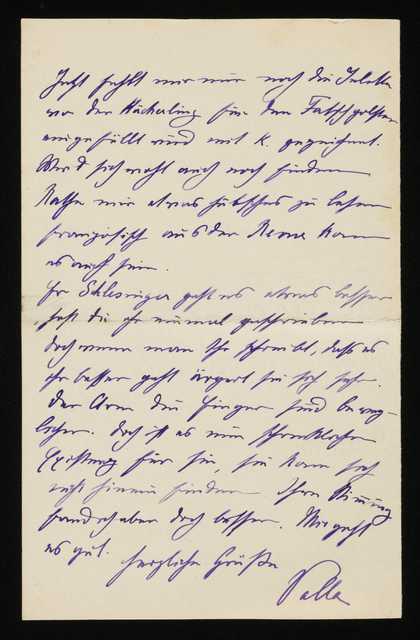 Jetzt fehlt mir nur noch die
wo der Häckerling für den
eingefüllt wird mit K. gezeichnet.
Wird sich wohl auch noch finden
Rathe mir etwas hübsches zu lesen
französisch aus der Revue kann
es auch sein.
Schlesinger geht es etwas besser
hast du ihr einmal geschrieben
doch wenn man ihr schreibt, dass es
ihr besser geht ärgert sie sich sehr.
Der Arm die Finger sind beweg-
licher. doch ist es eine schreckliche
Existenz für sie, sie kann sich
nicht hinein finden Ihre Stimmung
fand ich aber doch besser. Mir geht
es gut. herzliche Grüße